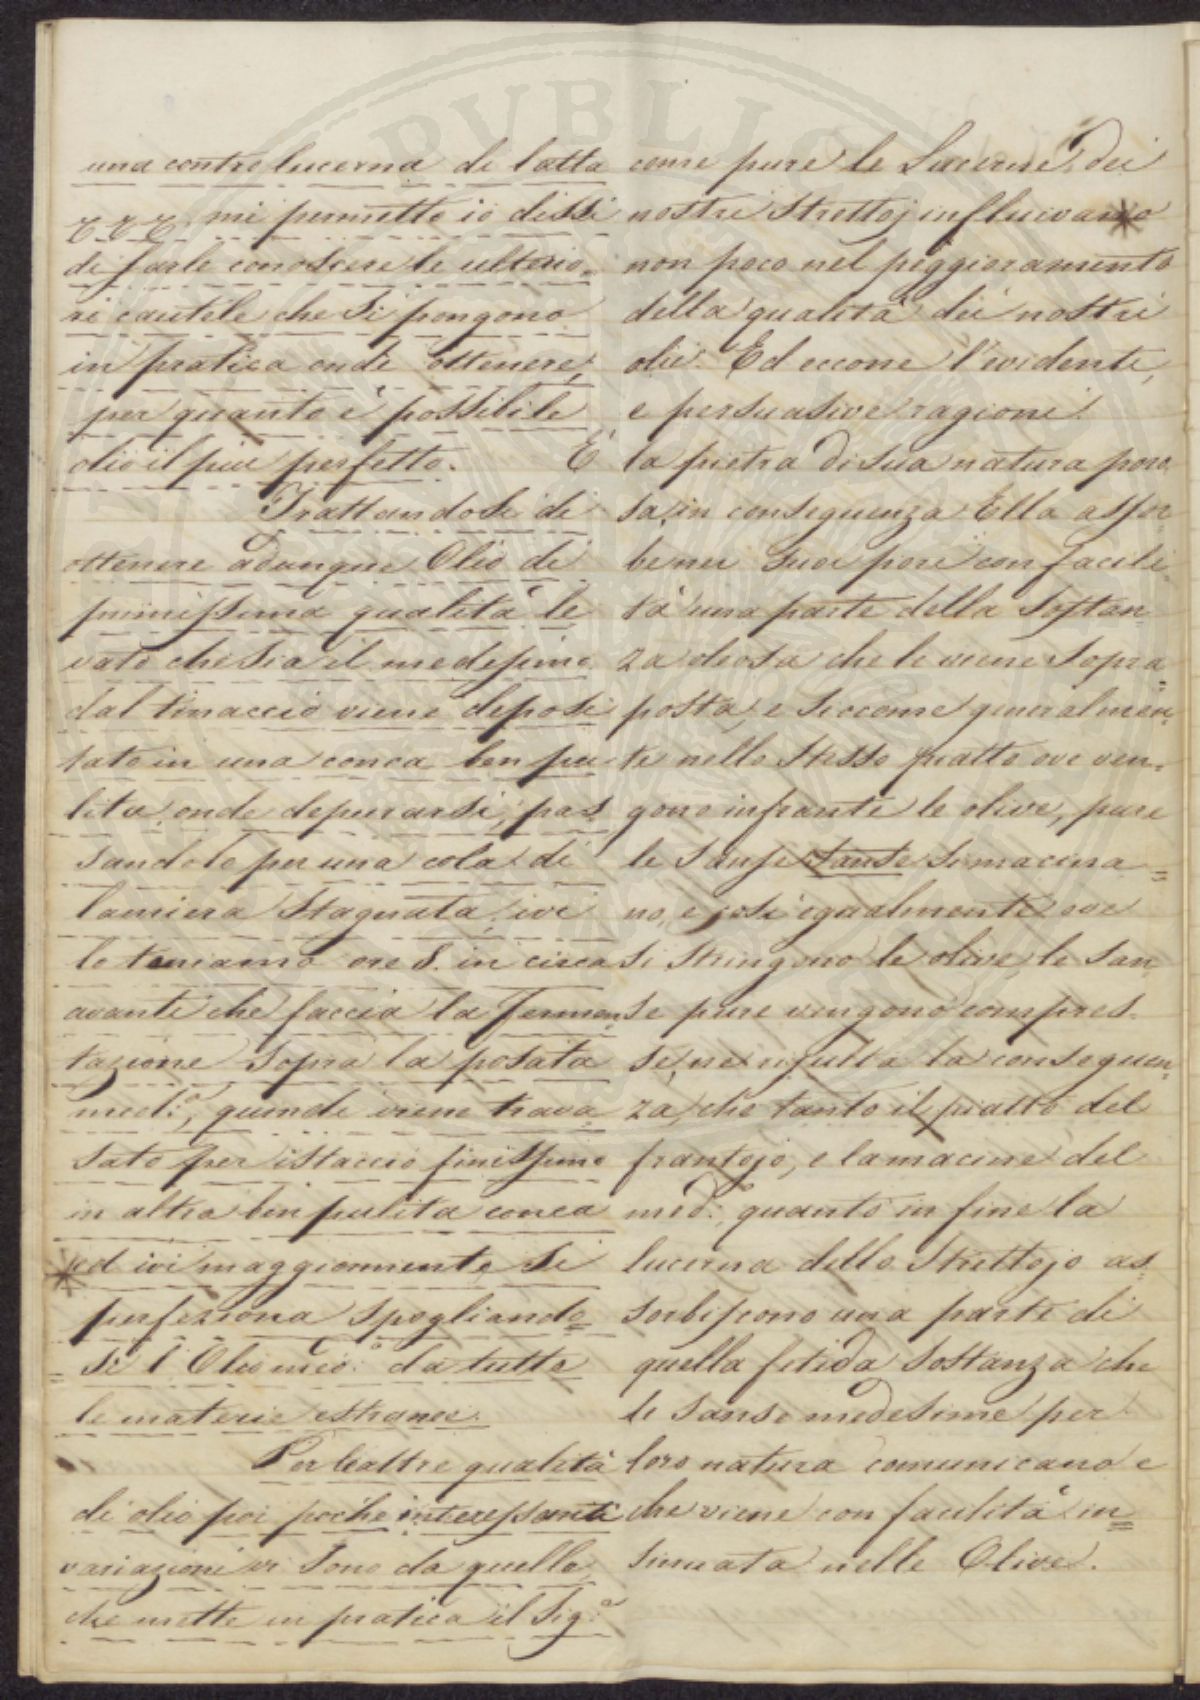 PVBLIC
una contro lucerna di latta
mi permetto io dissi
di farle conoscere le ulterio=
ri cautele che si pongono
in pratica onde ottenere,
per quanto è possibile
olio il più perfetto. È
Trattandosi di
ottenere adunque Olio di
primissima qualità le
vato che sia il medesimo
dal tinaccio viene deposi
tato in una conca ben pu
lita, onde depurarsi, pas
sandolo per una cola di
lamiera stagnata, ivi
lo teniamo ore 8. in circa
avanti che faccia la fermen
tazione sopra la posata
med:ª, quindi viene trava
sato per istaccio finissimo
in altra ben pulita conca
ed ivi maggiormente si
perfeziona spogliando=
=si l'Olio med:º da tutte
le materie estranee.
Per le altre qualità
di olio poi poche interessanti
variazioni vi sono da quelle,
che mette in pratica il Sig:ª
come pure le Lucerne dei
nostri Strettoj influivano
non poco nel peggioramento
della qualità dei nostri
olii. Ed eccone l'evidenti,
e persuasive ragioni!
la pietra di sua natura poro
sa, in conseguenza Ella assor=
be nei suoi pori con facili
tà una parte della sostan
za oleosa che le viene sopra=
posta, e siccome generalmen=
te nello stesso piatto ove ven=
gono infrante le olive, pure
le sanse sanse si macina=
no, e così egualmente ove
si stringono le olive le san
se pure vengono compres=
se, ne risulta la conseguen=
za, che tanto il piatto del
frantojo, e la macine del
med:º, quanto in fine la
lucerna dello Strettojo as=
sorbiscono una parte di
quella fetida sostanza che
le sanse medesime per
loro natura comunicano e
che viene con facilità in=
sinuata nelle Olive.